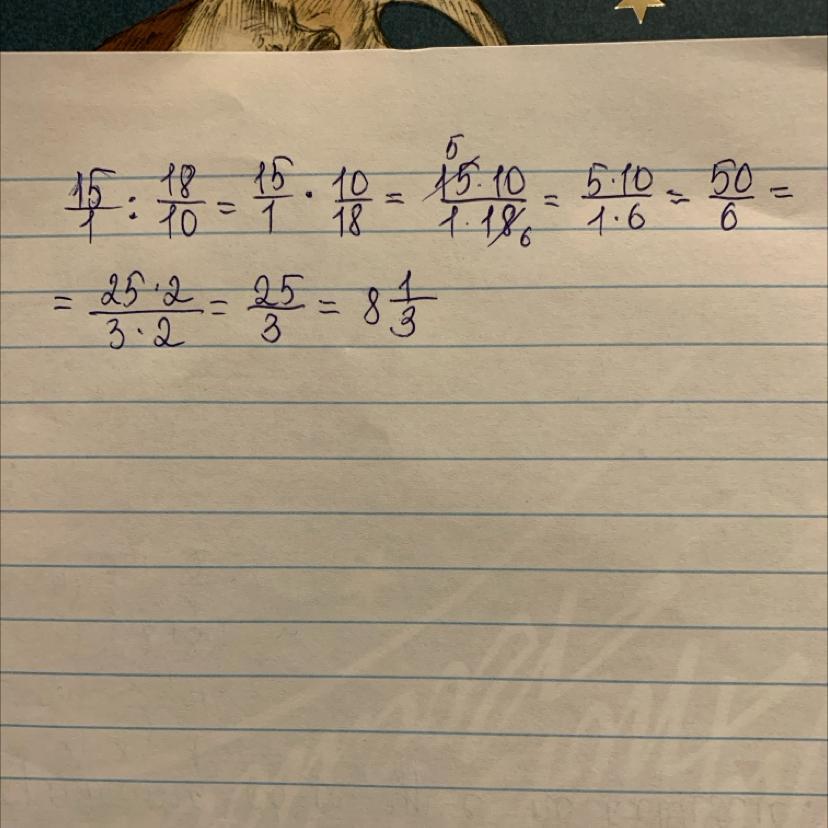 15/1 : 18/10 = 15/1 · 10/18 = 15·10/1·18 5 6 = 5·10/1·6 = 50/6 =
= 25·2/3·2 = 25/3 = 8 1/3